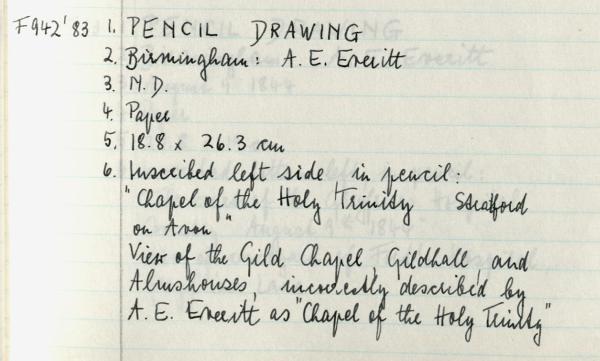 F942'83 1. PENCIL DRAWING
2. Birmingham: A. E. Everitt
3. N.D.
4. Paper
5. 18.8 x 26.3 cm
6. Inscribed left side in pencil:
"Chapel of the Holy Trinity Stratford
on Avon"
View of the Gild Chapel, Gildhall, and
Almshouses, incorrectly described by
A. E. Everitt as "Chapel of the Holy Trinity"